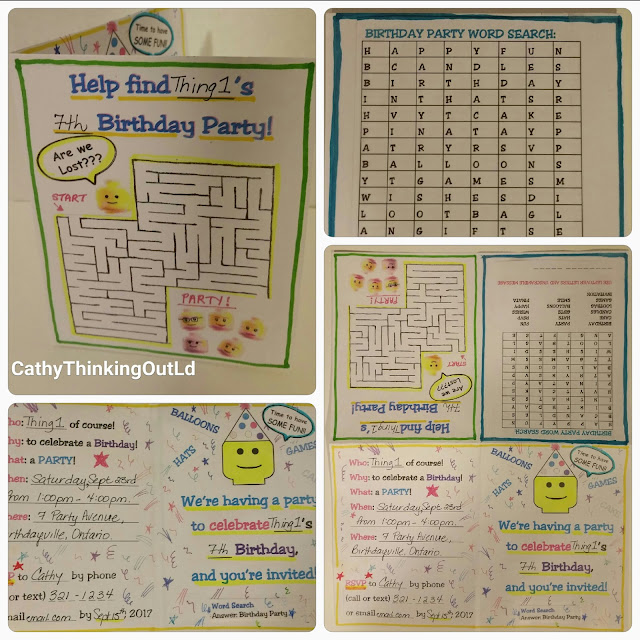 Time to have
SOME FUN!
Help find Thing1's
7th Birthday Party!
Are we
Lost???
START
PARTY!
CathyThinkingOutLd
BIRTHDAY PARTY WORD SEARCH:
H A P P Y F U N
B C A N D L E S
B I R T H D A Y
I N T H A T S R
H V Y T C A K E
P I N A T A Y P
A T R Y R S V P
B A L L O O N S
Y T G A M E S M
W I S H E S D I
L O O T B A G L
A N G I F T S E
Help find Thing1's
7th Birthday Party!
Are we
Lost???
START
PARTY!
BIRTHDAY PARTY WORD SEARCH:
BIRTHDAY PARTY FUN
CAKE HAPPY RSVP
CANDLES HATS WISHES
GIFTS BALLOONS
LOOTBAG
GAMES SMILE PINATA
INVITATION
ho: Thing1 of course!
hy: to celebrate a Birthday!
hat: a PARTY!
hen: Saturday, Sept 23rd
from 1:00pm - 4:00pm.
here: 7 Party Avenue,
irthdayville, Ontario.
to Cathy by phone
or text) 321-1234
email.com by Sept 15th, 2017
BALLOONS
HATS
GAMES
Time to have
SOME FUN!
We're having a party
to celebrate Thing1's
7th Birthday,
and you're invited!
Word Search
Answer: Birthday Party
Who: Thing1 of course!
Why: to celebrate a Birthday!
What: a PARTY!
When: Saturday, Sept 23rd
from 1:00pm - 4:00pm.
Where: 7 Party Avenue,
Birthdayville, Ontario.
RSVP to Cathy by phone
(call or text) 321-1234
or email email.com by Sept 15th, 2017
BALLOONS
HATS
GAMES
Time to have
SOME FUN!
We're having a party
to celebrate Thing1's
7th Birthday,
and you're invited!
Word Search
Answer: Birthday Party